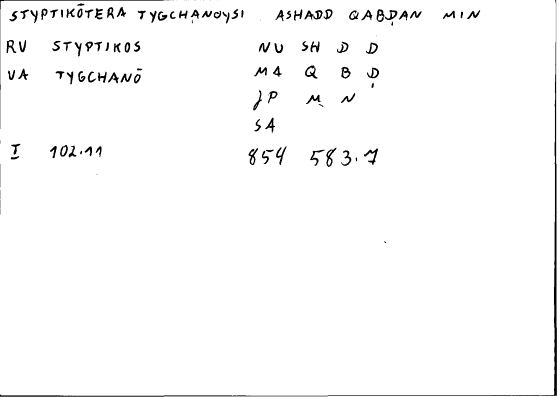 STYPTIKŌTERA TYGCHANOYSI ASHADD QABḌAN MIN
RV STYPTIKOS NU SH D D
VA TYGCHANŌ M4 Q B Ḍ
JP M N
SA
I 102.11 854 583.7